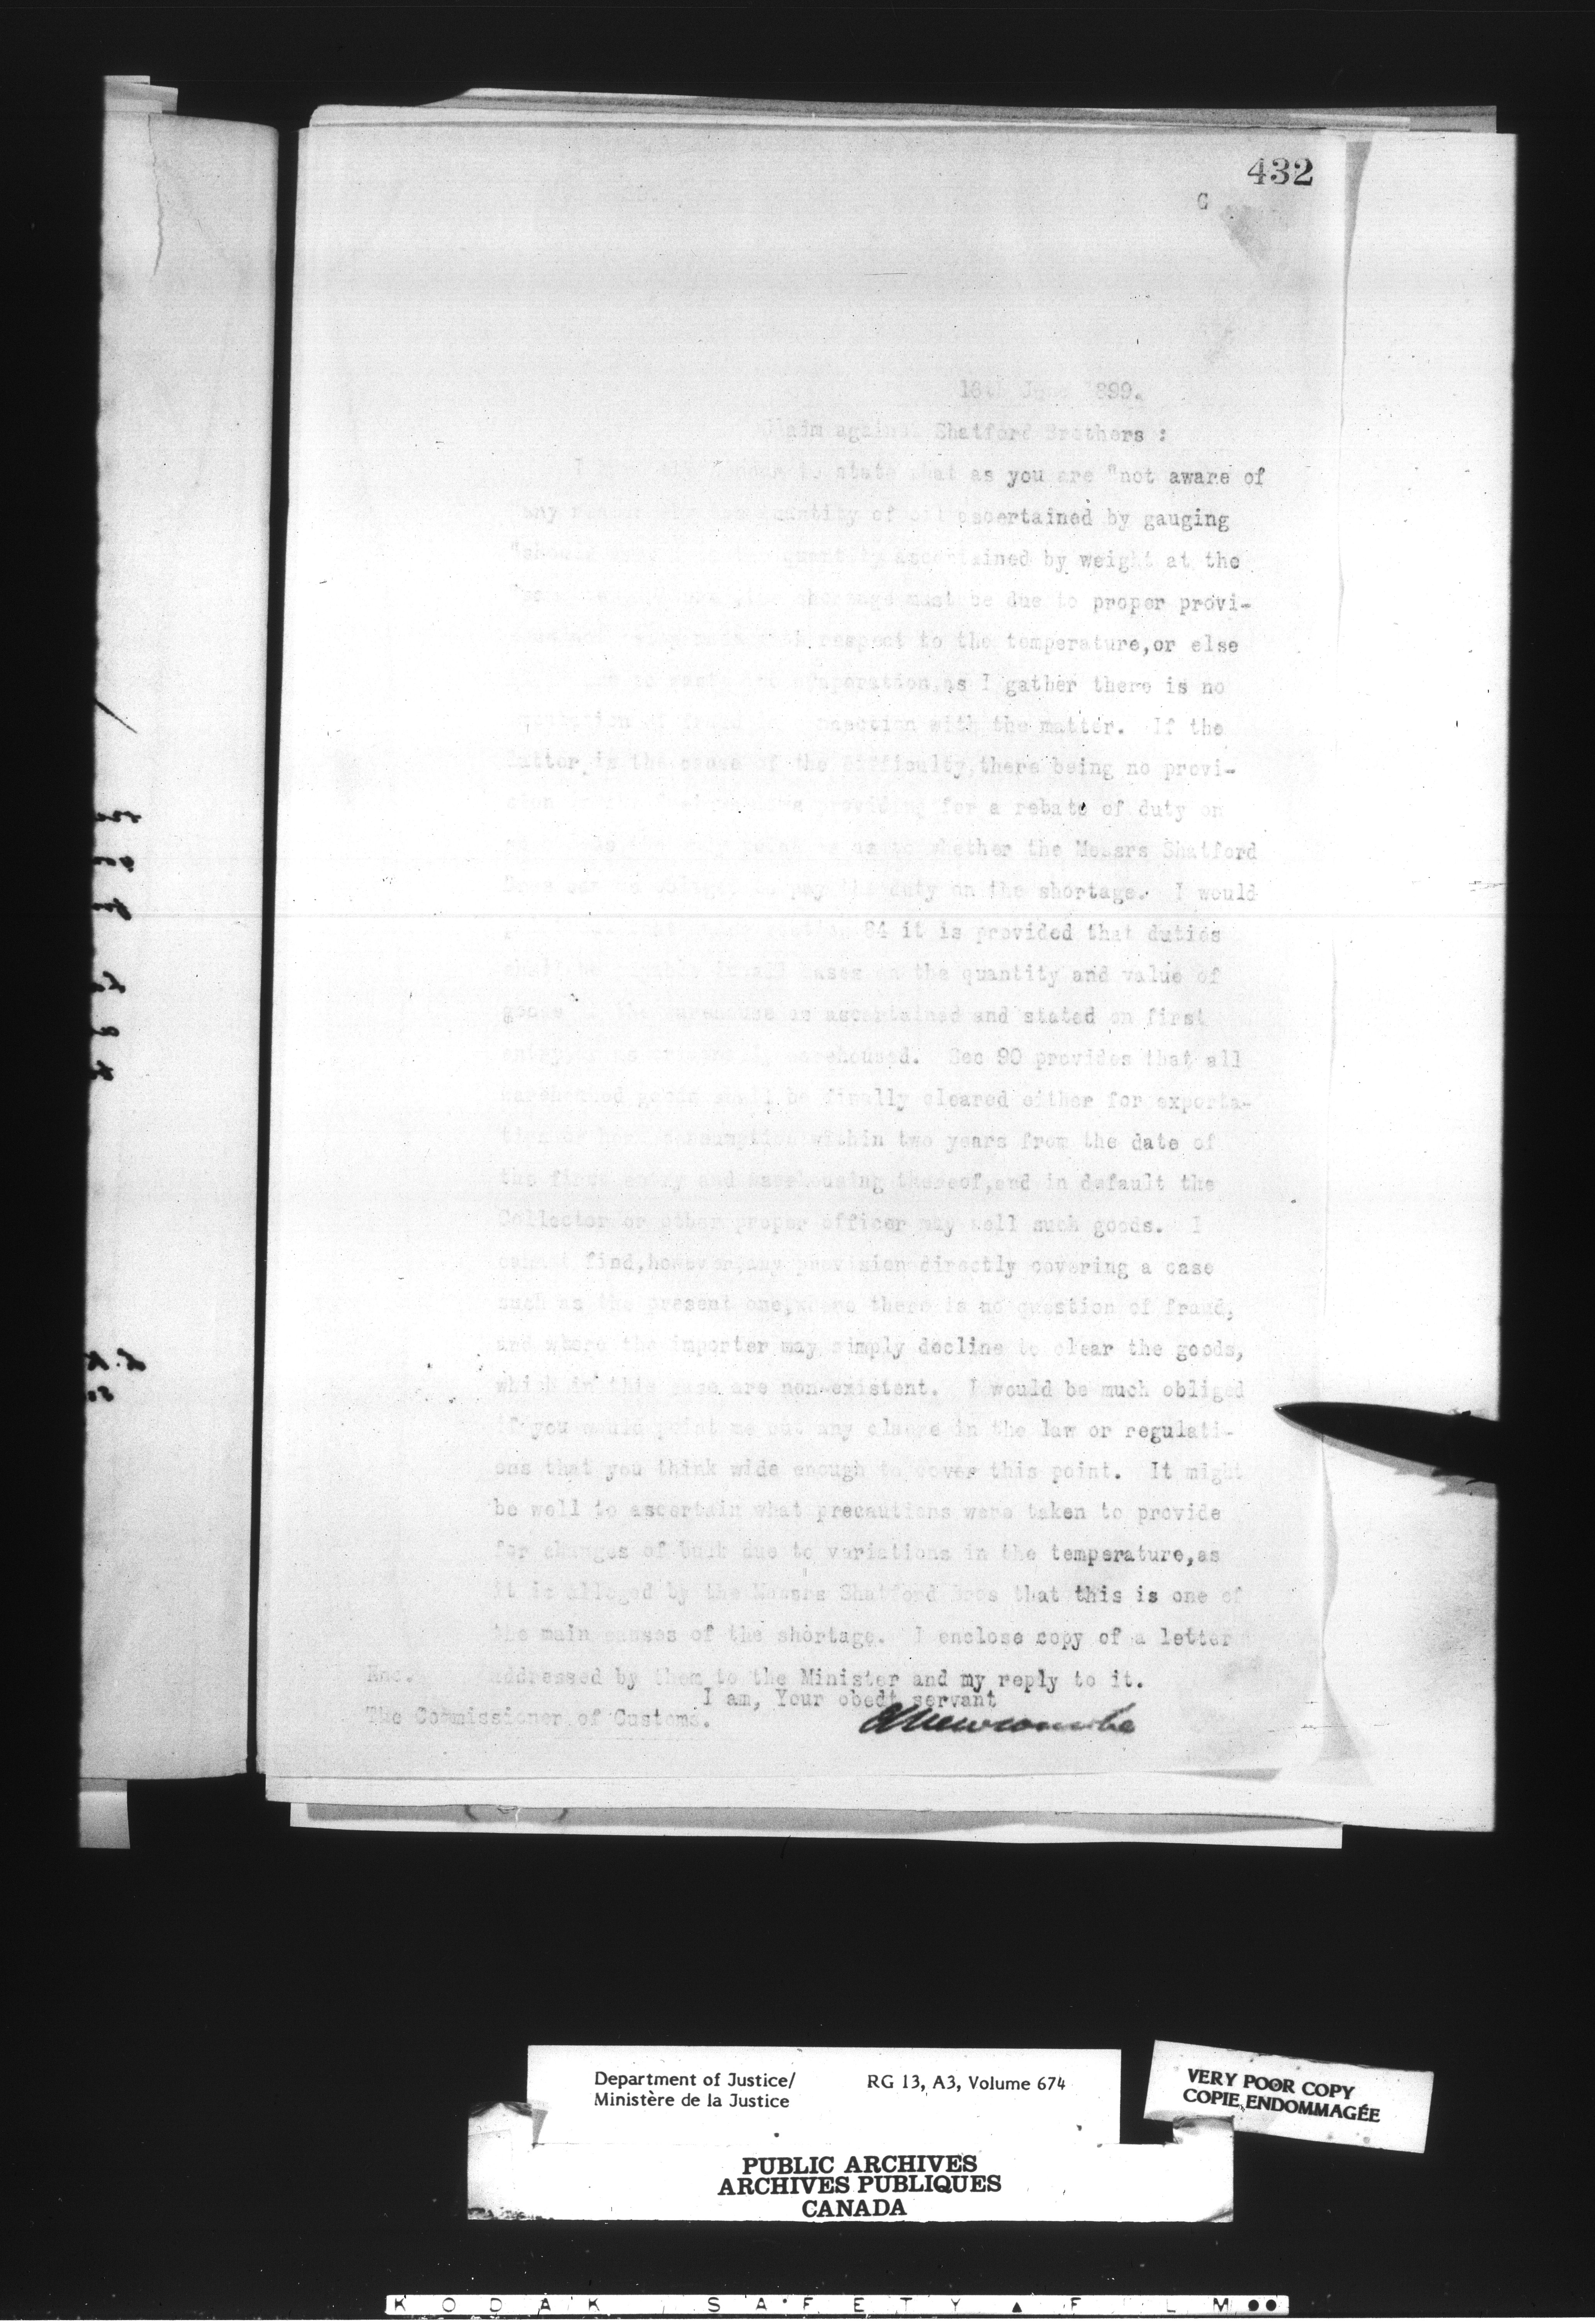 432
C
16th June 1899.
Claim against Shatford Brothers :
I have the honour to state that as you are "not aware of
any quantity of oil ascertained by gauging
"should quantity ascertained by weight at the
shortage must be due to proper provi-
with respect to the temperature,or else
evaporation,as I gather there is no
question of fraud in connection with the matter. If the
latter is the cause of the difficulty,there being no provi-
sion providing for a rebate of duty on
as to whether the Messrs Shatford
Bros pay the duty on the shortage. I would
84 it is provided that duties
shall be payable in all cases on the quantity and value of
goods in the warehouse as ascertained and stated on first
entry warehoused. Sec 90 provides that all
warehoused goods shall be finally cleared either for exporta-
tion or home consumption within two years from the date of
the first entry and warehousing thereof,and in default the
Collector or other proper officer may sell such goods. I
cannot find,however,any provision directly covering a case
such as the present one,where there is no question of fraud,
and where the importer may simply decline to clear the goods,
which in this case are non-existent. I would be much obliged
if you would point me out any clause in the law or regulati-
ons that you think wide enough to cover this point. It might
be well to ascertain what precautions were taken to provide
for changes of bulk due to variations in the temperature,as
it is alleged by the Messrs Shatford Bros that this is one of
the main causes of the shortage. I enclose copy of a letter
Enc. addressed by them to the Minister and my reply to it.
I am, Your obedt servant
The Commissioner of Customs.
Newcombe
Department of Justice/
Ministère de la Justice
RG 13, A3, Volume 674
VERY POOR COPY
COPIE ENDOMMAGÉE
PUBLIC ARCHIVES
ARCHIVES PUBLIQUES
CANADA
KODAK SAFETY ▲ FILM ●●